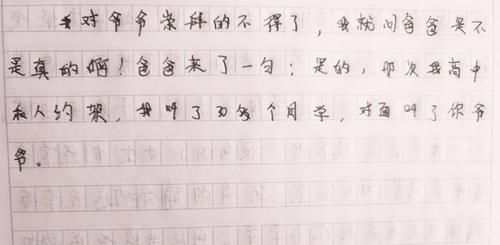 我对爷爷崇拜的不得了，我就问爸爸是不
是真的啊！爸爸来了一句：是的，那次我高中
和人约架，我叫了30多个同学，对面叫了你爷
爷。